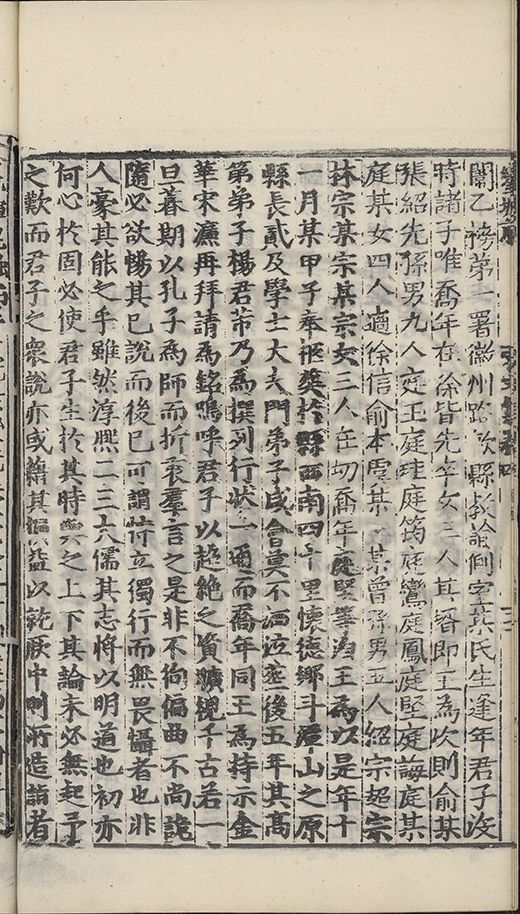 乙榜第一署徽州路歙縣教諭側室某氏生逢年君子沒
時諸子唯喬年在徐皆先卒女三人其壻即王為次則俞某
張紹先孫男九人庭玉庭珪庭筠庭鸞庭鳳庭堅庭誨庭某
庭某女四人適徐信俞本虞某 某曾孫男五人紹宗超宗
林宗某宗某宗女三人在切喬年庭堅王為以是年十
一月某甲子奉柩葬於縣西南四十里懷德鄉斗潭山之原
縣長貳及學士大夫門弟子咸會莫不洒泣塟後五年其高
第弟子楊君芾乃為撰列行狀一通而喬年同王為持示金
華宋濂再拜請為銘嗚呼君子以超絕之資曠視千古若一
旦暮期以孔子為師而折衷羣言之是非不徇偏曲不尚詭
隨必欲暢其已說而後已可謂特立獨行而無畏懾者也非
人豪其能之乎雖然淳熙二三大儒其志將以明道也初亦
何心於固必使君子生於其時與之上下其論未必無起予
之歎而君子之衆說亦或藉其損益以就厥中則所造詣者